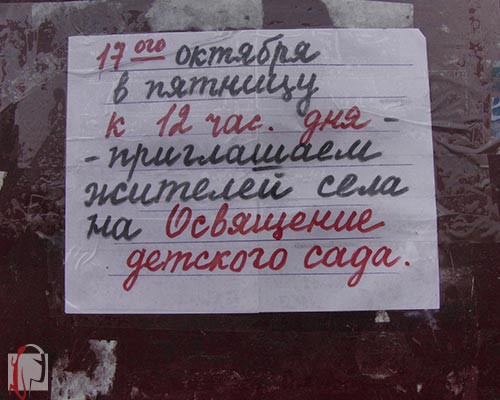 17ого октября
в пятницу
к 12 час. дня -
- приглашаем
жителей села
на Освящение
детского сада.